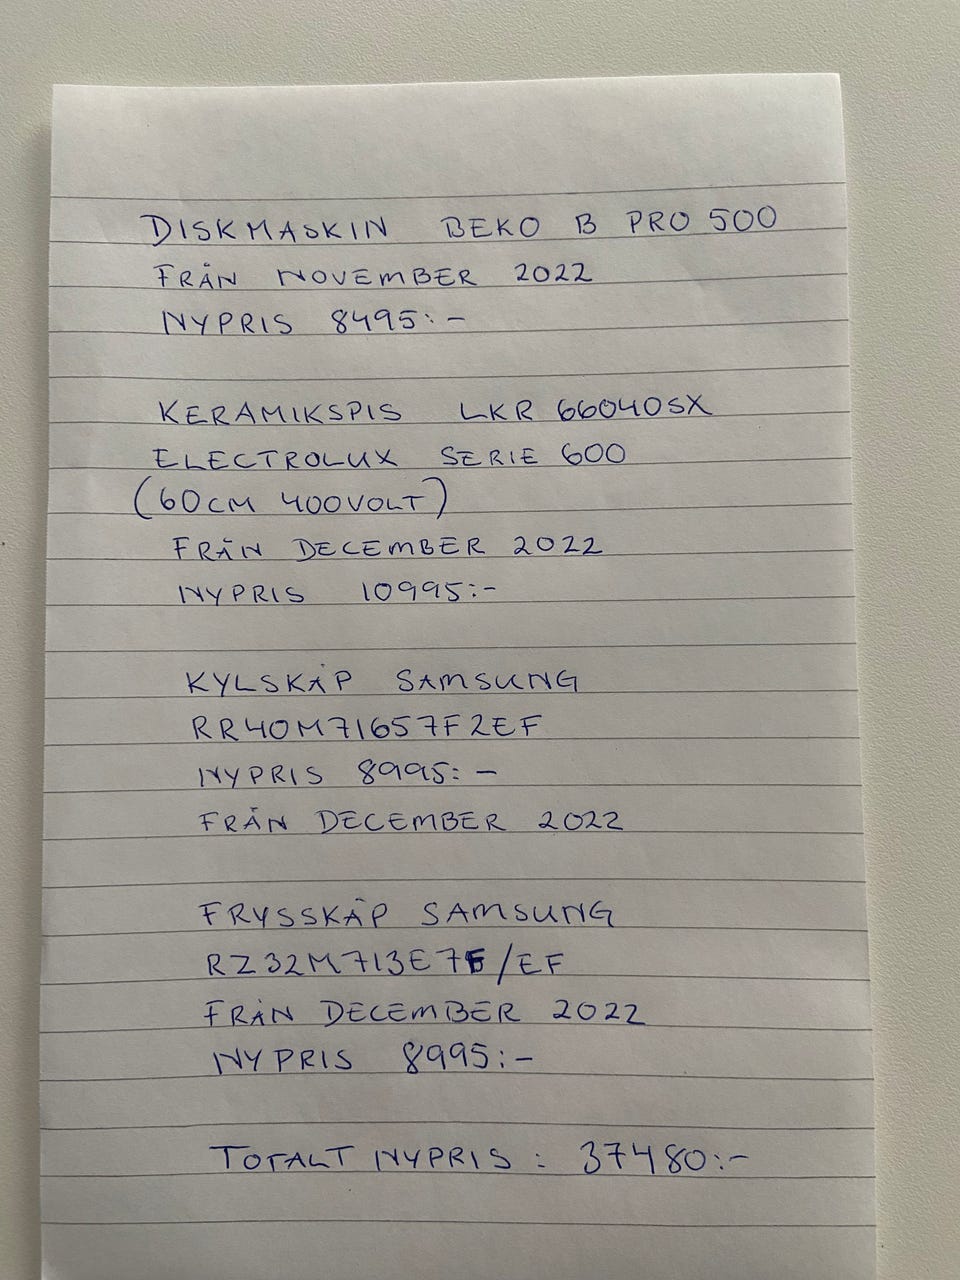 DISKMASKIN BEKO B PRO 500
FRÅN NOVEMBER 2022
NYPRIS 8495:-
KERAMIKSPIS LKR 66040SX
ELECTROLUX SERIE 600
(60CM 400VOLT)
FRÅN DECEMBER 2022
NYPRIS 10995:-
KYLSKÅP SAMSUNG
RR40M71657F2EF
NYPRIS 8995:-
FRÅN DECEMBER 2022
FRYSSKÅP SAMSUNG
RZ32M713E7F/EF
FRÅN DECEMBER 2022
NYPRIS 8995:-
TOTALT NYPRIS: 37480:-